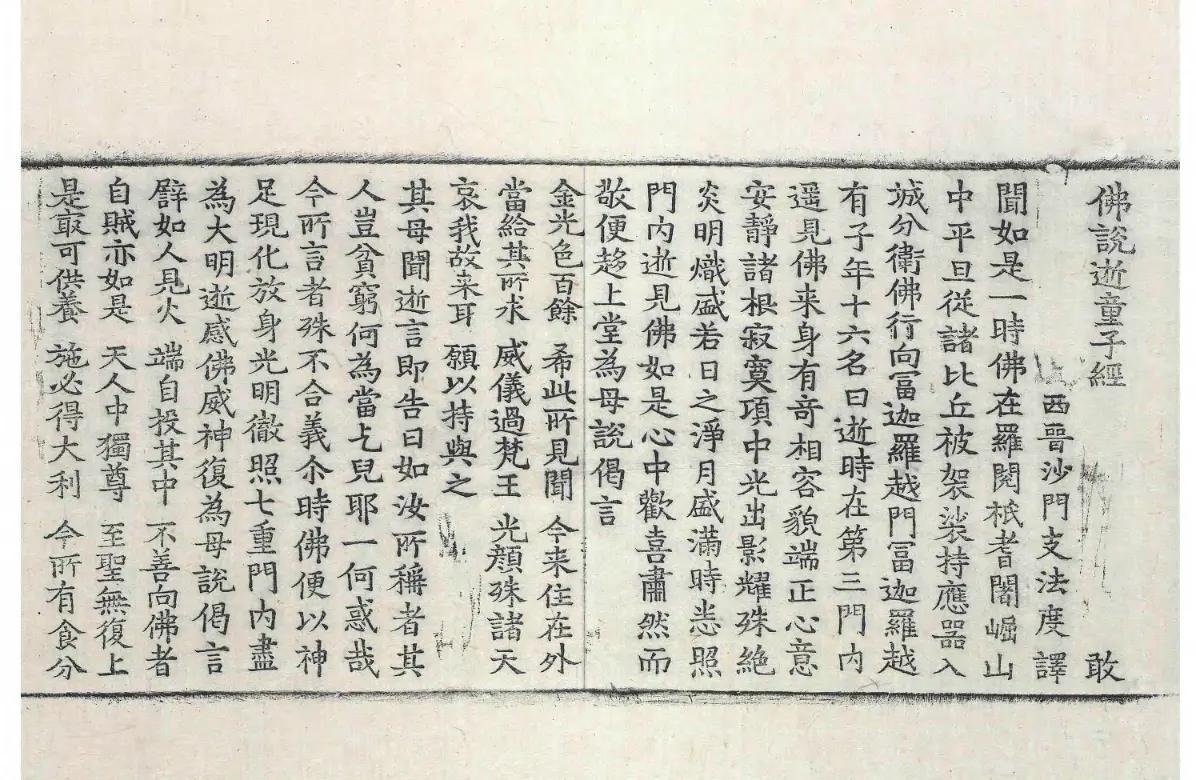 佛說逝童子經 敢
西晉沙門支法度譯
聞如是一時佛在羅閱祇耆闍崛山
中平旦從諸比丘被袈裟持應器入
城分衛佛行向冨迦羅越門冨迦羅越
有子年十六名曰逝時在第三門內
遥見佛来身有竒相容貌端正心意
安靜諸根寂寞項中光出影耀殊絶
炎明熾盛若日之淨月盛滿時悉照
門內逝見佛如是心中歡喜肅然而
敬便趍上堂為母說偈言
金光色百餘 希此所見聞 今来住在外
當給其所求 威儀過梵王 光顏殊諸天
哀我故来耳 願以持與之
其母聞逝言即告曰如汝所稱者其
人豈貧窮何為當乞兒耶一何惑哉
今所言者殊不合義尒時佛便以神
足現化放身光明徹照七重門內盡
為大明逝感佛威神復為母說偈言
譬如人見火 端自投其中 不善向佛者
自賊亦如是 天人中獨尊 至聖無復上
是㝡可供養 施必得大利 今所有食分